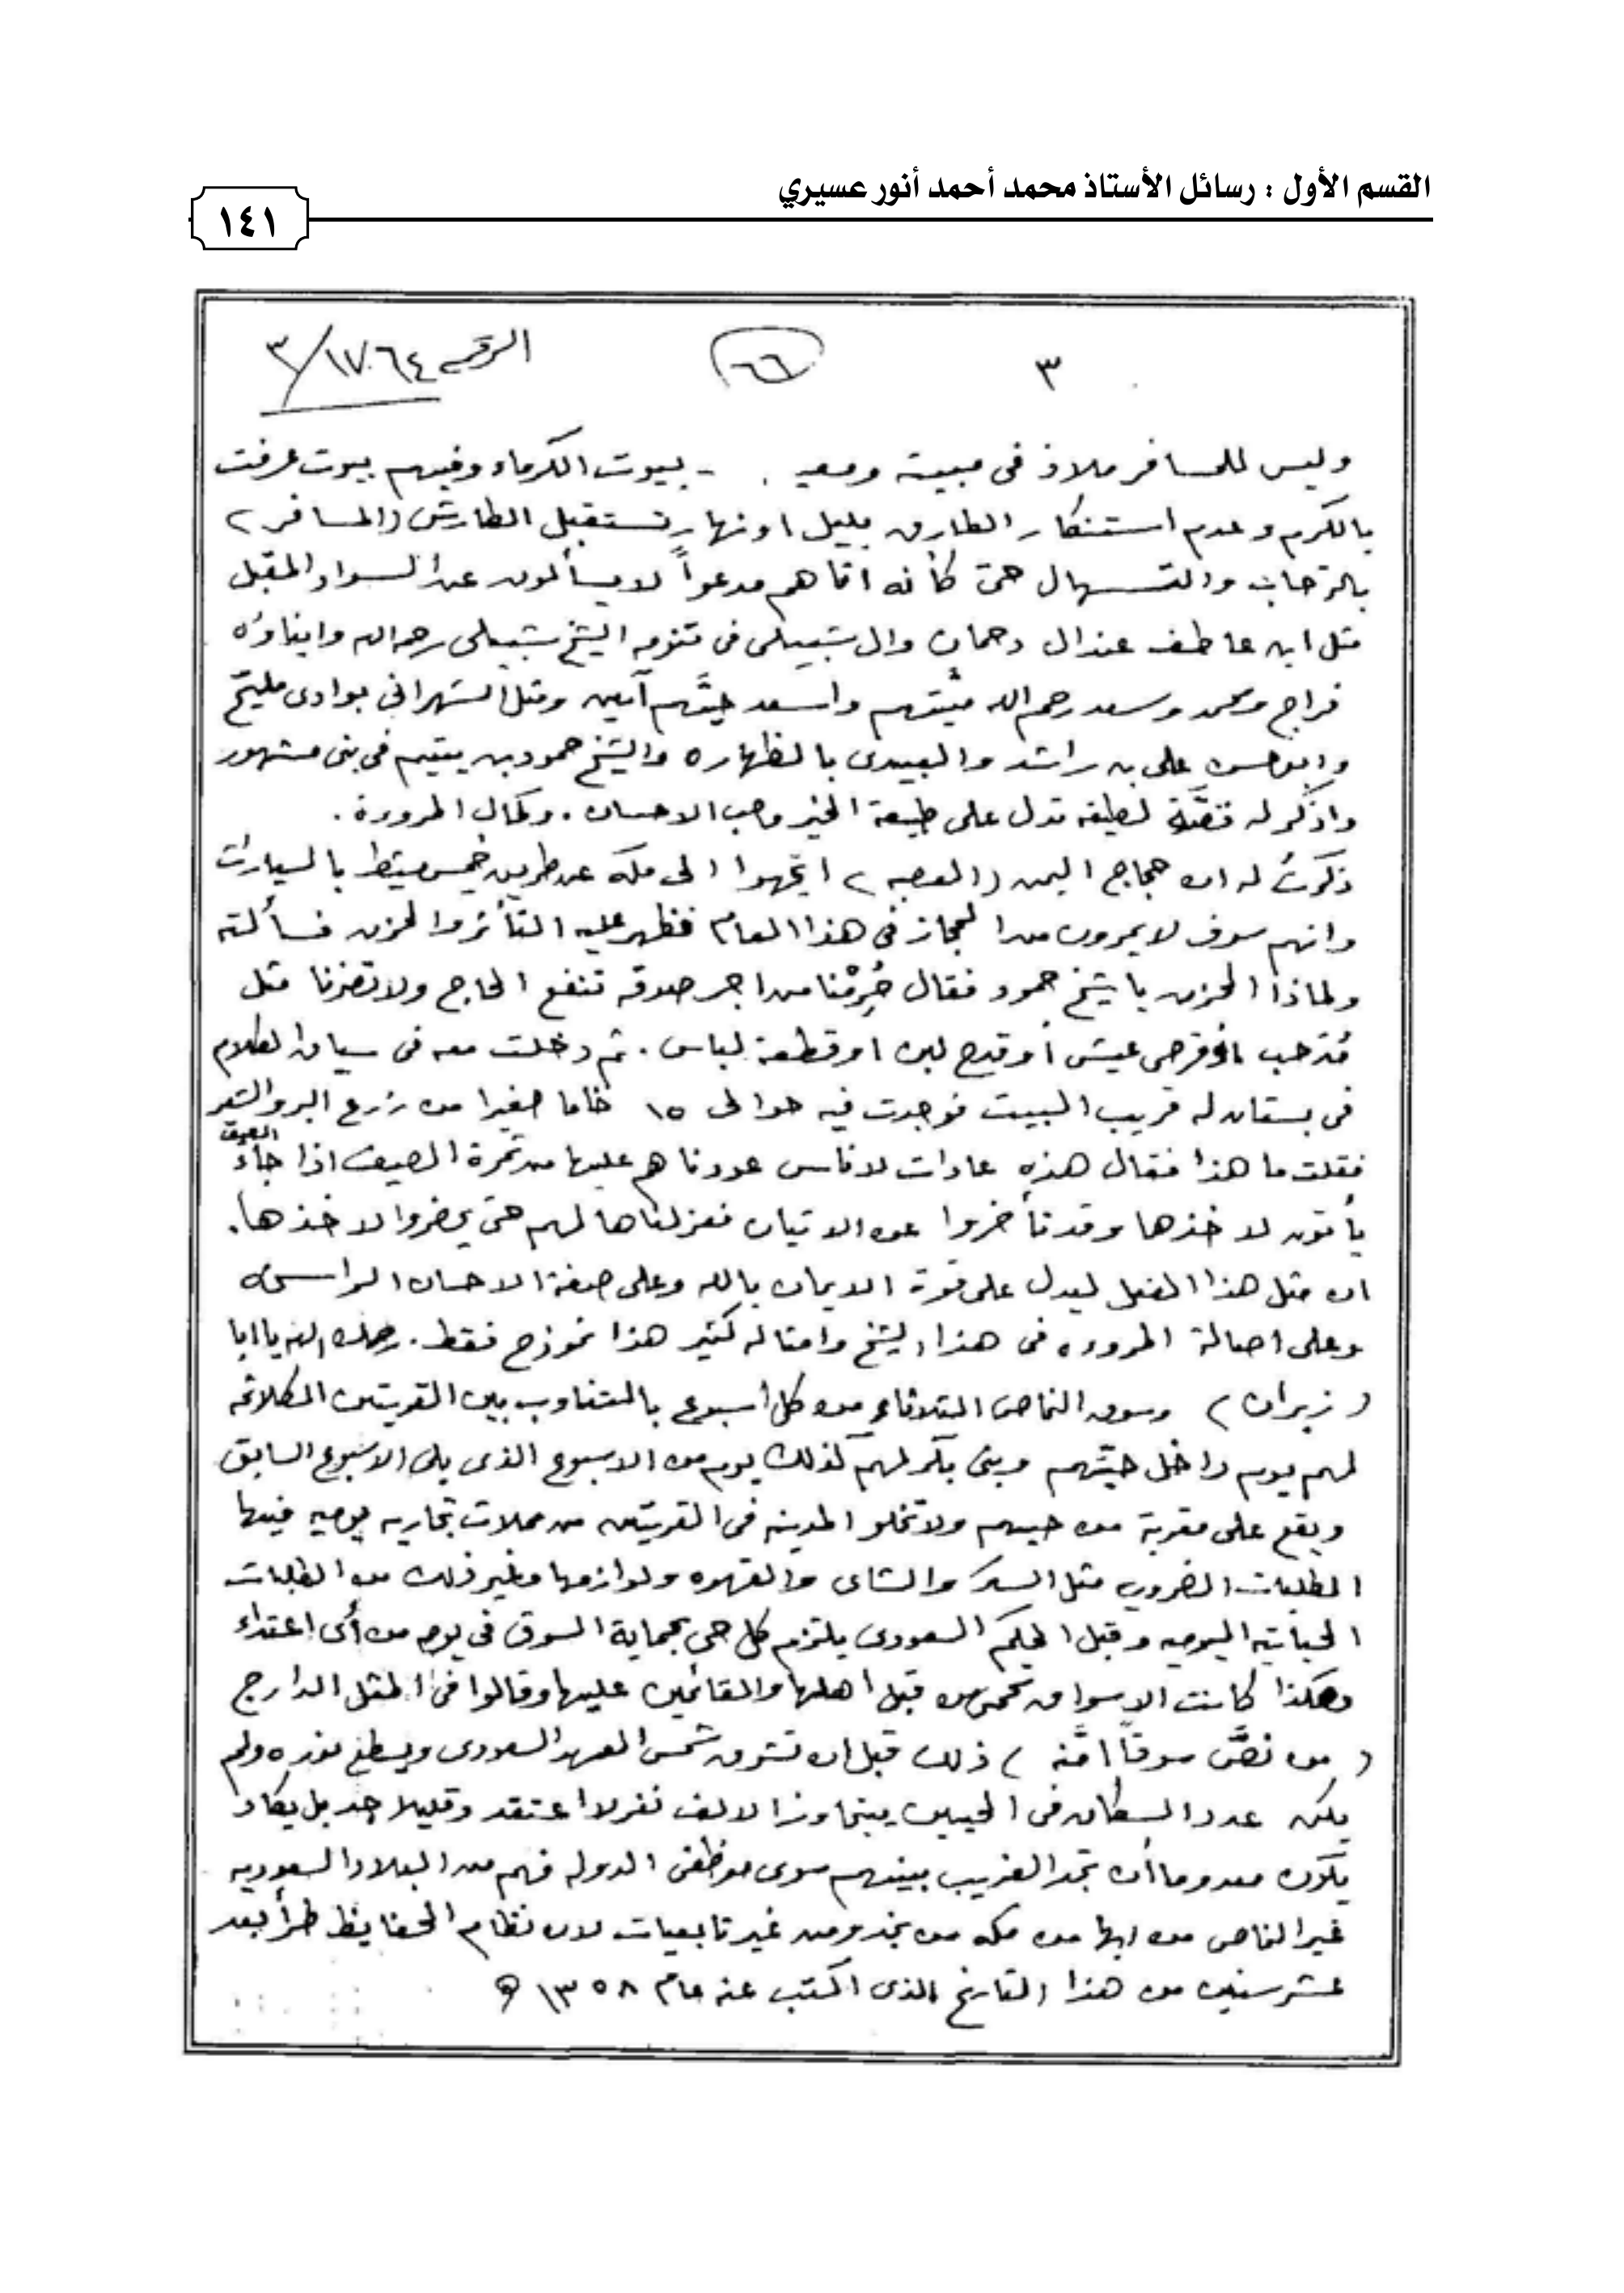 القسم الأول : رسائل الأستاذ محمد أحمد أنور عسيري
١٤١
٣
٦٦
الرقم ١٧٠٦٤/٣
وليس للمسافر ملاذ فى مبيته - بيوت الكرماء وفيهم بيوت عرفت
بالكرم وعدم استنكار الطارق بليل او نهار تستقبل الطارش (المسافر)
بالترحاب والتسهال حتى كأنه اتاهم مدعواً لا يسألون عن السواد المقبل
مثل ابن عاطف عند ال دحمان وال شبيلى فى تنومه الشيخ شبيلى رحمه الله وابناؤه
فراج ومحمد وسعد رحم الله ميّتهم واسعد حيَّهم آمين ومثل الشهرانى بوادى
وابو حسن على بن راشد والبيدى بالظهاره والشيخ حمود بن يتيم فى بنى مشهور
واذكر له قصَّة لطيفه تدل على طبيعة الخير وحب الاحسان . وكمال المروءة .
ذكرتُ له ان حجاج اليمن (العصبه) اتجهوا الى مكه عن طريق خميس مشيط بالسيارات
وانهم سوف لا يمرون من الحجاز فى هذا العام فظهر عليه التأثر والحزن فسألته
ولماذا الحزن يا شيخ حمود فقال حُرِمْنا من اجر صدقه تنفع الحاج ولا تضرنا مثل
قرص عيش أو قدح لبن او قطعة لباس . ثم دخلت معه فى سياق الكلام
فى بستان له قريب البيت فوجدت فيه حوالى ١٥ صغيرا من زرع البر والشعير
فقلت ما هذا فقال هذه عادات لاناس عودناهم عليها من ثمرة الصيف اذا جاءَ الصيف
يأتون لاخذها وقد تأخروا عن الاتيان فعزلناها لهم حتى يحضروا لاخذها .
ان مثل هذا الفعل ليدل على قوة الايمان بالله وعلى صفة الاحسان
وعلى اصالة المروءه فى هذا الشيخ وامثاله كثير هذا نموذج فقط . رحمك الله يا ابا
(زيران) وسوق النماص الثلاثاء من كل أسبوع بالتناوب بين القريتين الكلاثمه
لهم يوم داخل حيّهم وبنى بكر لهم كذلك يوم من الاسبوع الذى يلى الاسبوع السابق
ويقع على مقربة من حيهم ولا تخلو المدينه فى القريتين من محلات تجاريه يوميه فيها
الطلبات الضروريه مثل السكر والشاى والقهوه ولوازمها وغير ذلك من الطلبات
الحياتيه اليوميه وقبل الحكم السعودى يلتزم كل حى بحماية السوق فى يومه من أى اعتداء
وهكذا كانت الاسواق تحمى من قبل اهلها والقائمين عليها وقالوا فى المثل الدارج
(من نصَّ سوقاً امَّنه) ذلك قبل ان تشرق شمس العهد السعودى ويسطع نوره ولم
يكن عدد السكان فى الحيين يتجاوز الالف نفر لا اعتقد وقليلا جد بل يكاد
يكون معدوما أن تجد الغريب بينهم سوى موظفى الدوله فهم من البلاد السعوديه
غير النماص من ابها من مكه من نجد ومن غير تابعيات لان نظام الحفايظ طرأ بعد
عشر سنين من هذا التاريخ الذى اكتب عنه عام ١٣٥٨ ه